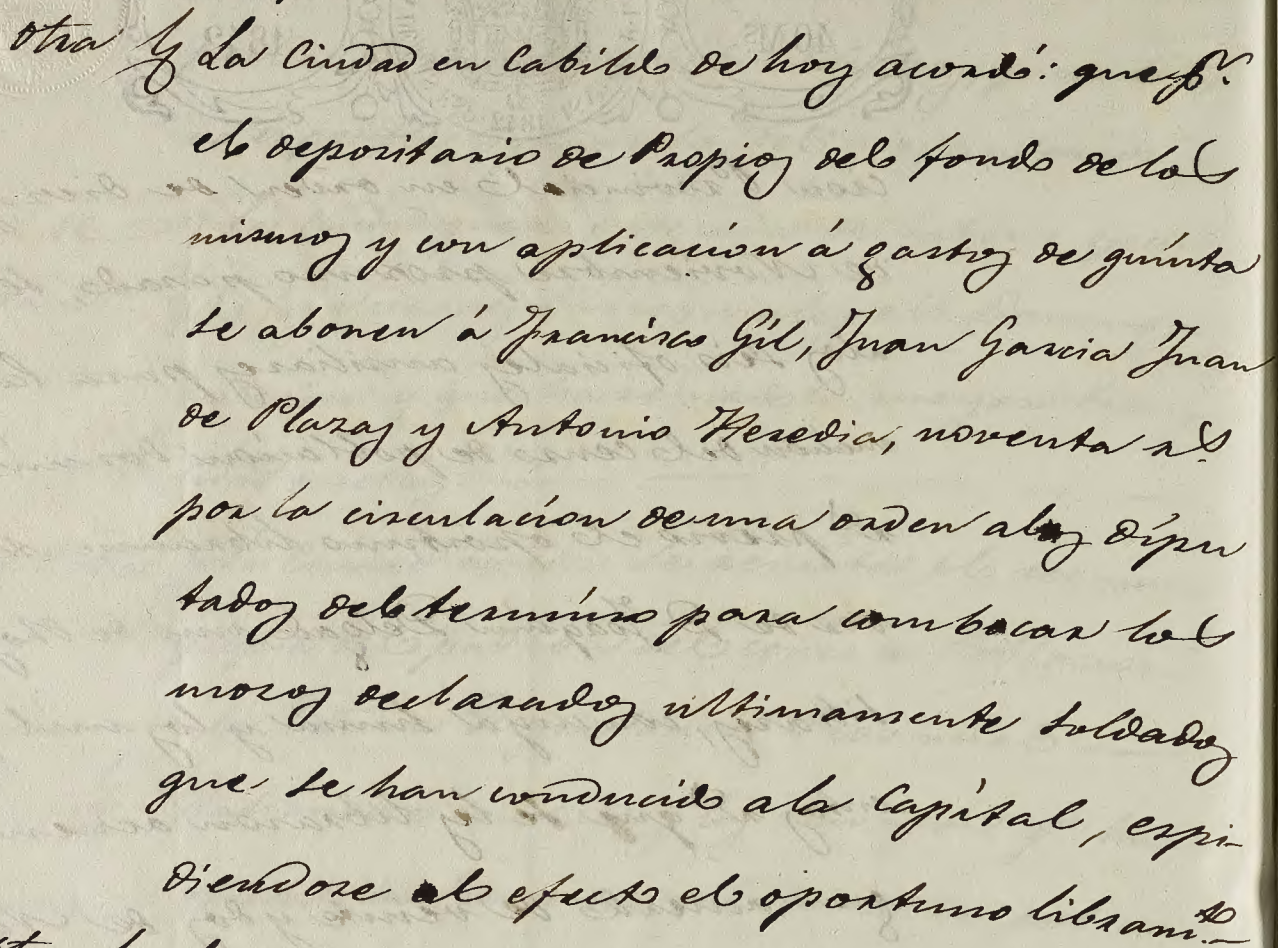 otra } La Ciudad en Cabildo de hoy acordó: que pr.
el depositario de Propios del fondo de los
mismos y con aplicacion á gastos de quinta
se abonen á Francisco Gil, Juan Garcia Juan
de Plazas y Antonio Heredia, noventa rs.
por la circulacion de una orden alos dipu
tados del termino para combocar los
mozos declarados ultimamente soldados
que se han conducido ala Capital, espi-
diendose al efecto el oportuno libramto